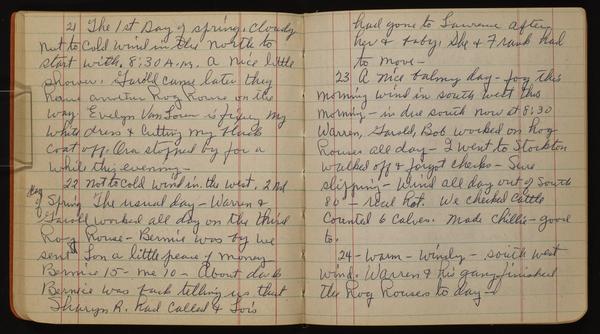 21 The 1st Day of spring, cloudy
not to cold wind in the North to
start with. 8:30 A.m. a nice little
shower. Harold came later they
have another Hog House on the
way. Evelyn Van is fixing my
white dress & cutting my black
coat off. Ora stopped by for a
while this evening—
22 Not to cold wind in the west. 2nd
day of Spring The usual day— Warren &
Harold worked all day on the third
Hog House— Bernie was by we
sent Lon a little peace of money—
Bernie 15— me 10— About dark
Bernice was back telling us that
Sharyn R. had called & Lois
had gone to Lawrence after
her & baby. She & Frank had
to move—
23 A nice balmy day— fog this
morning wind in south west this
morning— in due south now at 8:30
Warren, Harold, Bob worked on hog
Houses all day— I went to Stockton
walked off & forgot checks— Sure
slipping— Wind all day out of South
80— real hot. We checked cattle
Counted 6 calves. Made chilli— good
to.
24— Warm— Windy— south west
wind. Warren & his gang finished
the Hog Houses to day—